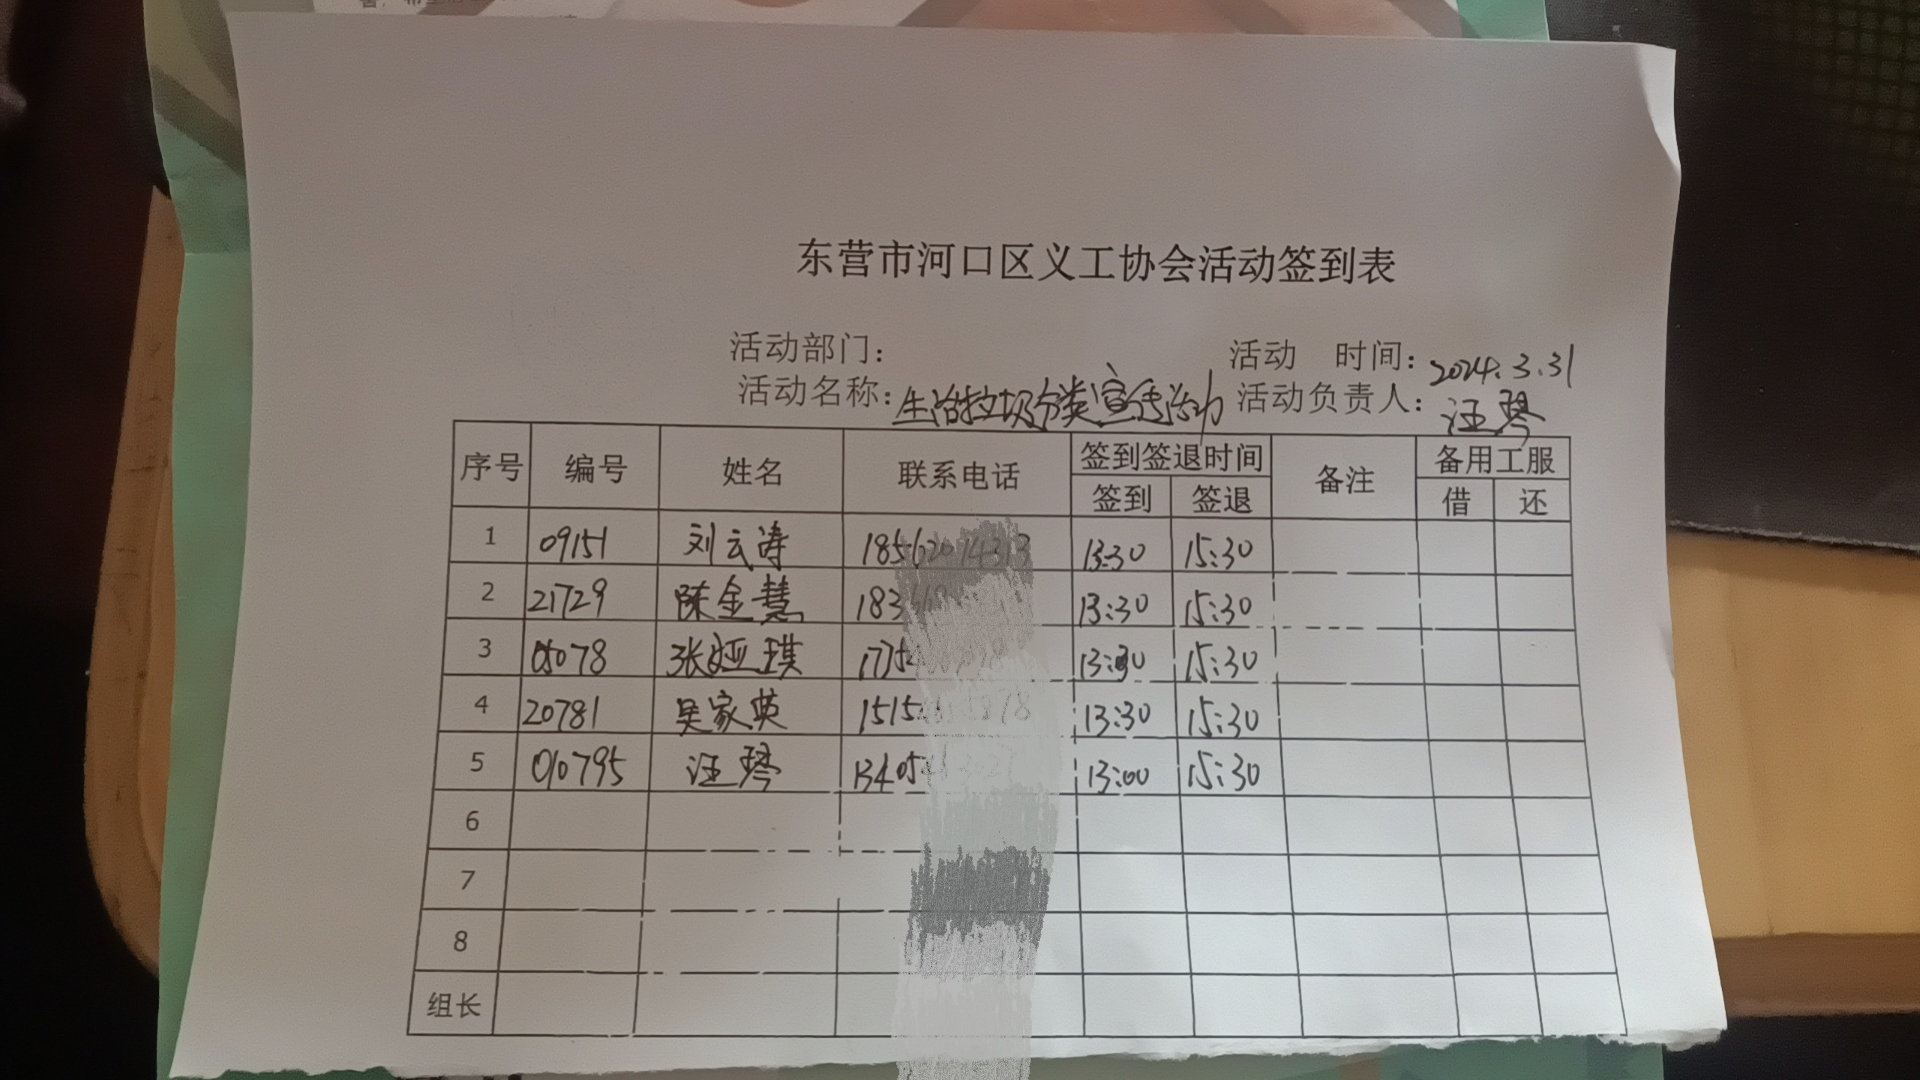 东营市河口区义工协会活动签到表
活动部门： 活动 时间：2024.3.31
活动名称：生活垃圾分类宣传活动 活动负责人：汪琴
序号 编号 姓名 联系电话 签到签退时间 备注 备用工服
签到 签退 借 还
1 09151 刘云涛 13:30 15:30
2 21729 陈金慧 13:30 15:30
3 05078 张娅琪 13:30 15:30
4 20781 吴家英 13:30 15:30
5 010795 汪琴 13:00 15:30
6
7
8
组长